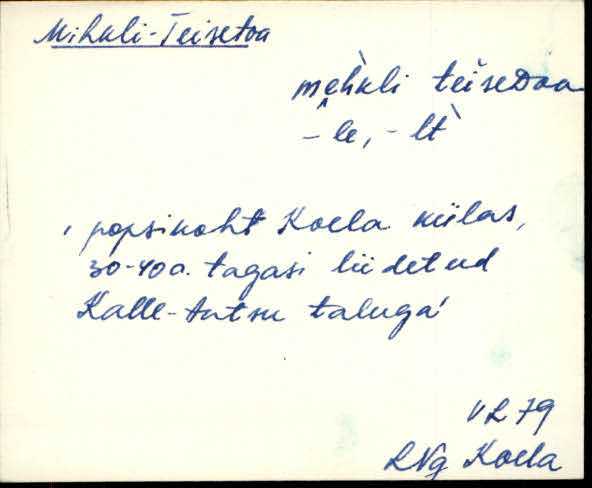 Mihkli-Teisetoa
meh̀kli teiseᴅaa
– le, – lt̀
' popsikoht Koela külas,
30-40 a. tagasi liidetud
Kalle-Antsu taluga'
VL 79
LNg Koela